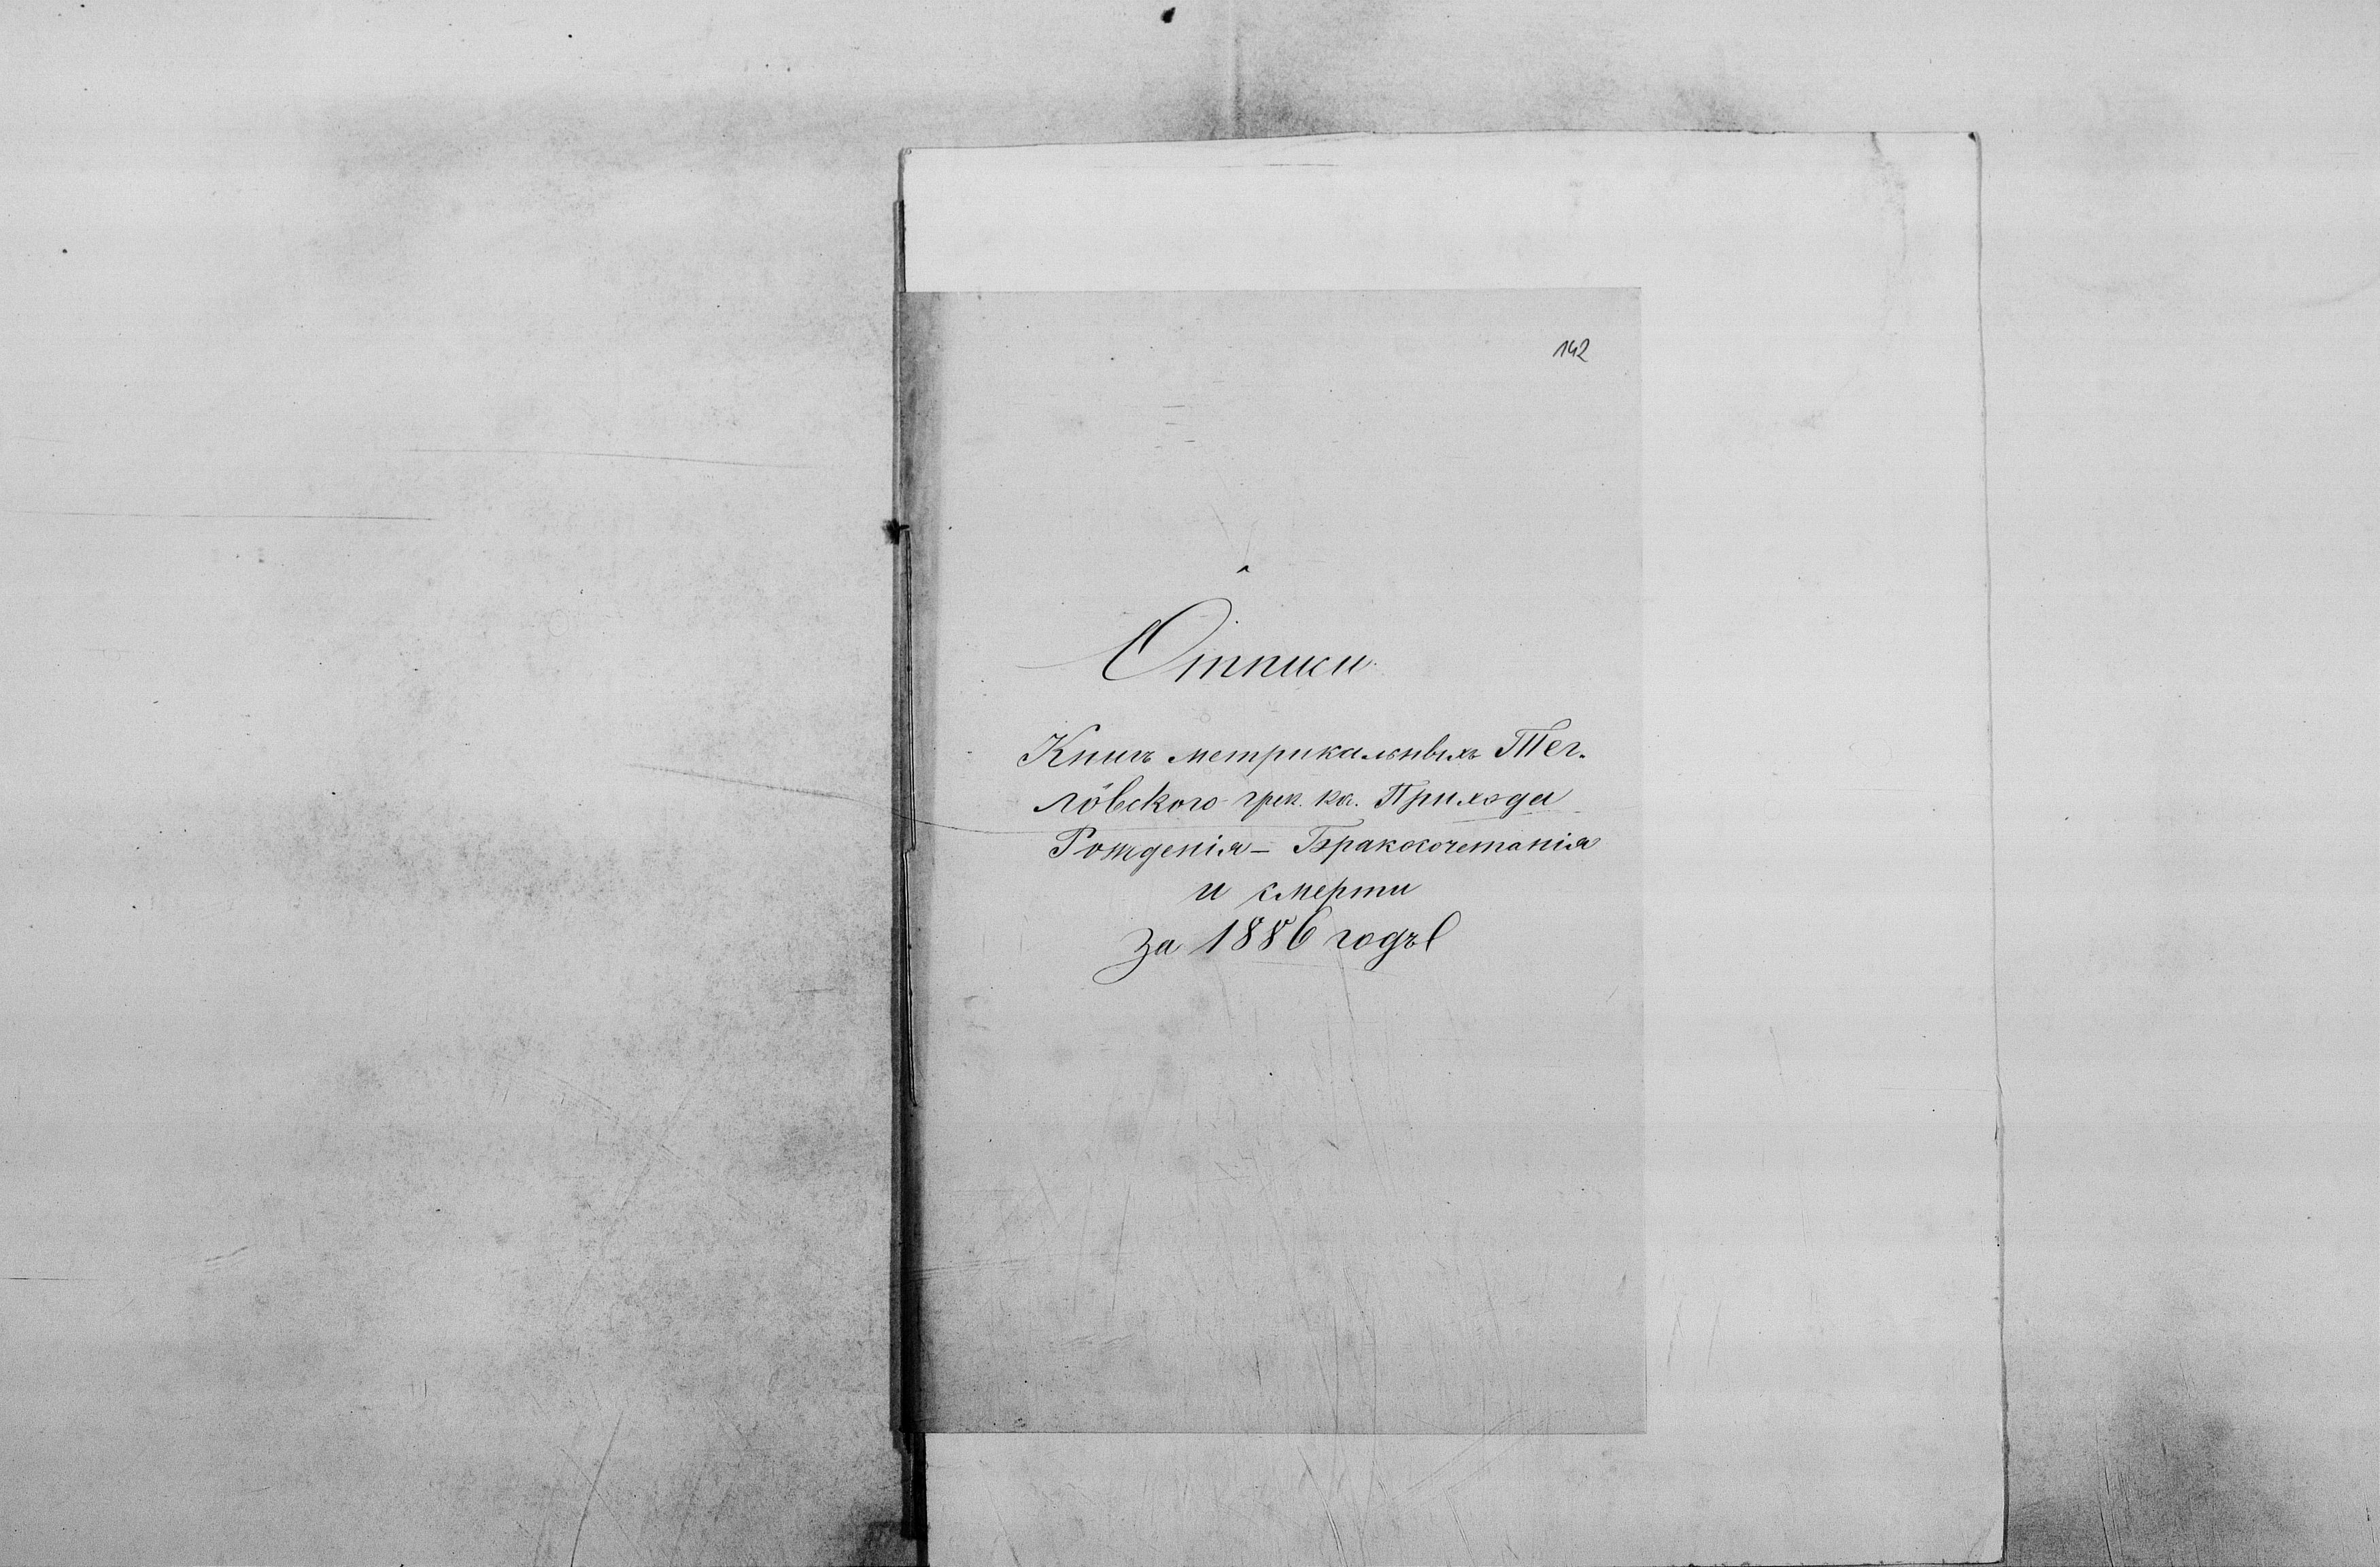 142
Отписи
Книгъ метрикальныхъ Тег-
ло̂вского грек. ка. Прихода
Рожденія – Бракосочетанія
и смерти
За 1886 годъ